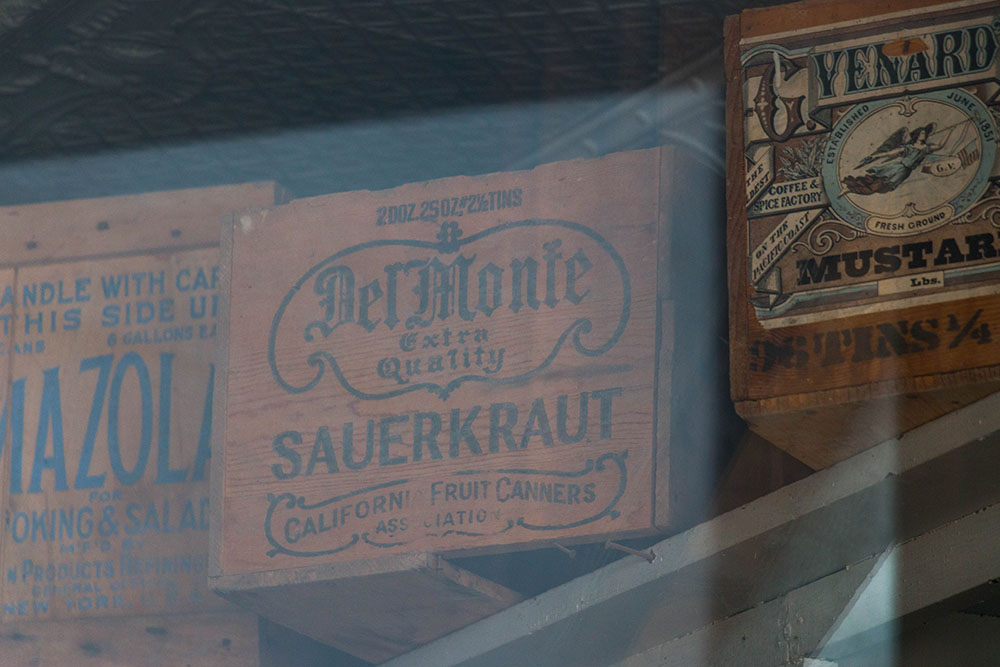 ANDLE WITH CAR
THIS SIDE U
6 GALLONS
MAZOLA
FOR
OKING & SALAD
MF'D BY
N PRODUCTS REFINING
GENERAL
NEW YORK
2 DOZ. 25 OZ. #2½ TINS
Del Monte
Extra
Quality
SAUERKRAUT
CALIFORNI FRUIT CANNERS
ASS CIATION
G. VENARD'
ESTABLISHED JUNE 1851
G.V. Mills
THE BEST
COFFEE &
SPICE FACTORY
ON THE
PACIFIC COAST
FRESH GROUND
MUSTAR
Lbs.
96 TINS ¼